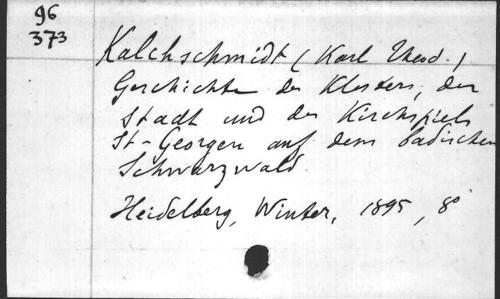 96
373
Kalchschmidt (Karl Theod.)
Geschichte des Klosters, der
Stadt und des Kirchspiels
St-Georgen auf dem badischen
Schwarzwald.
Heidelberg, Winter, 1895, 8°